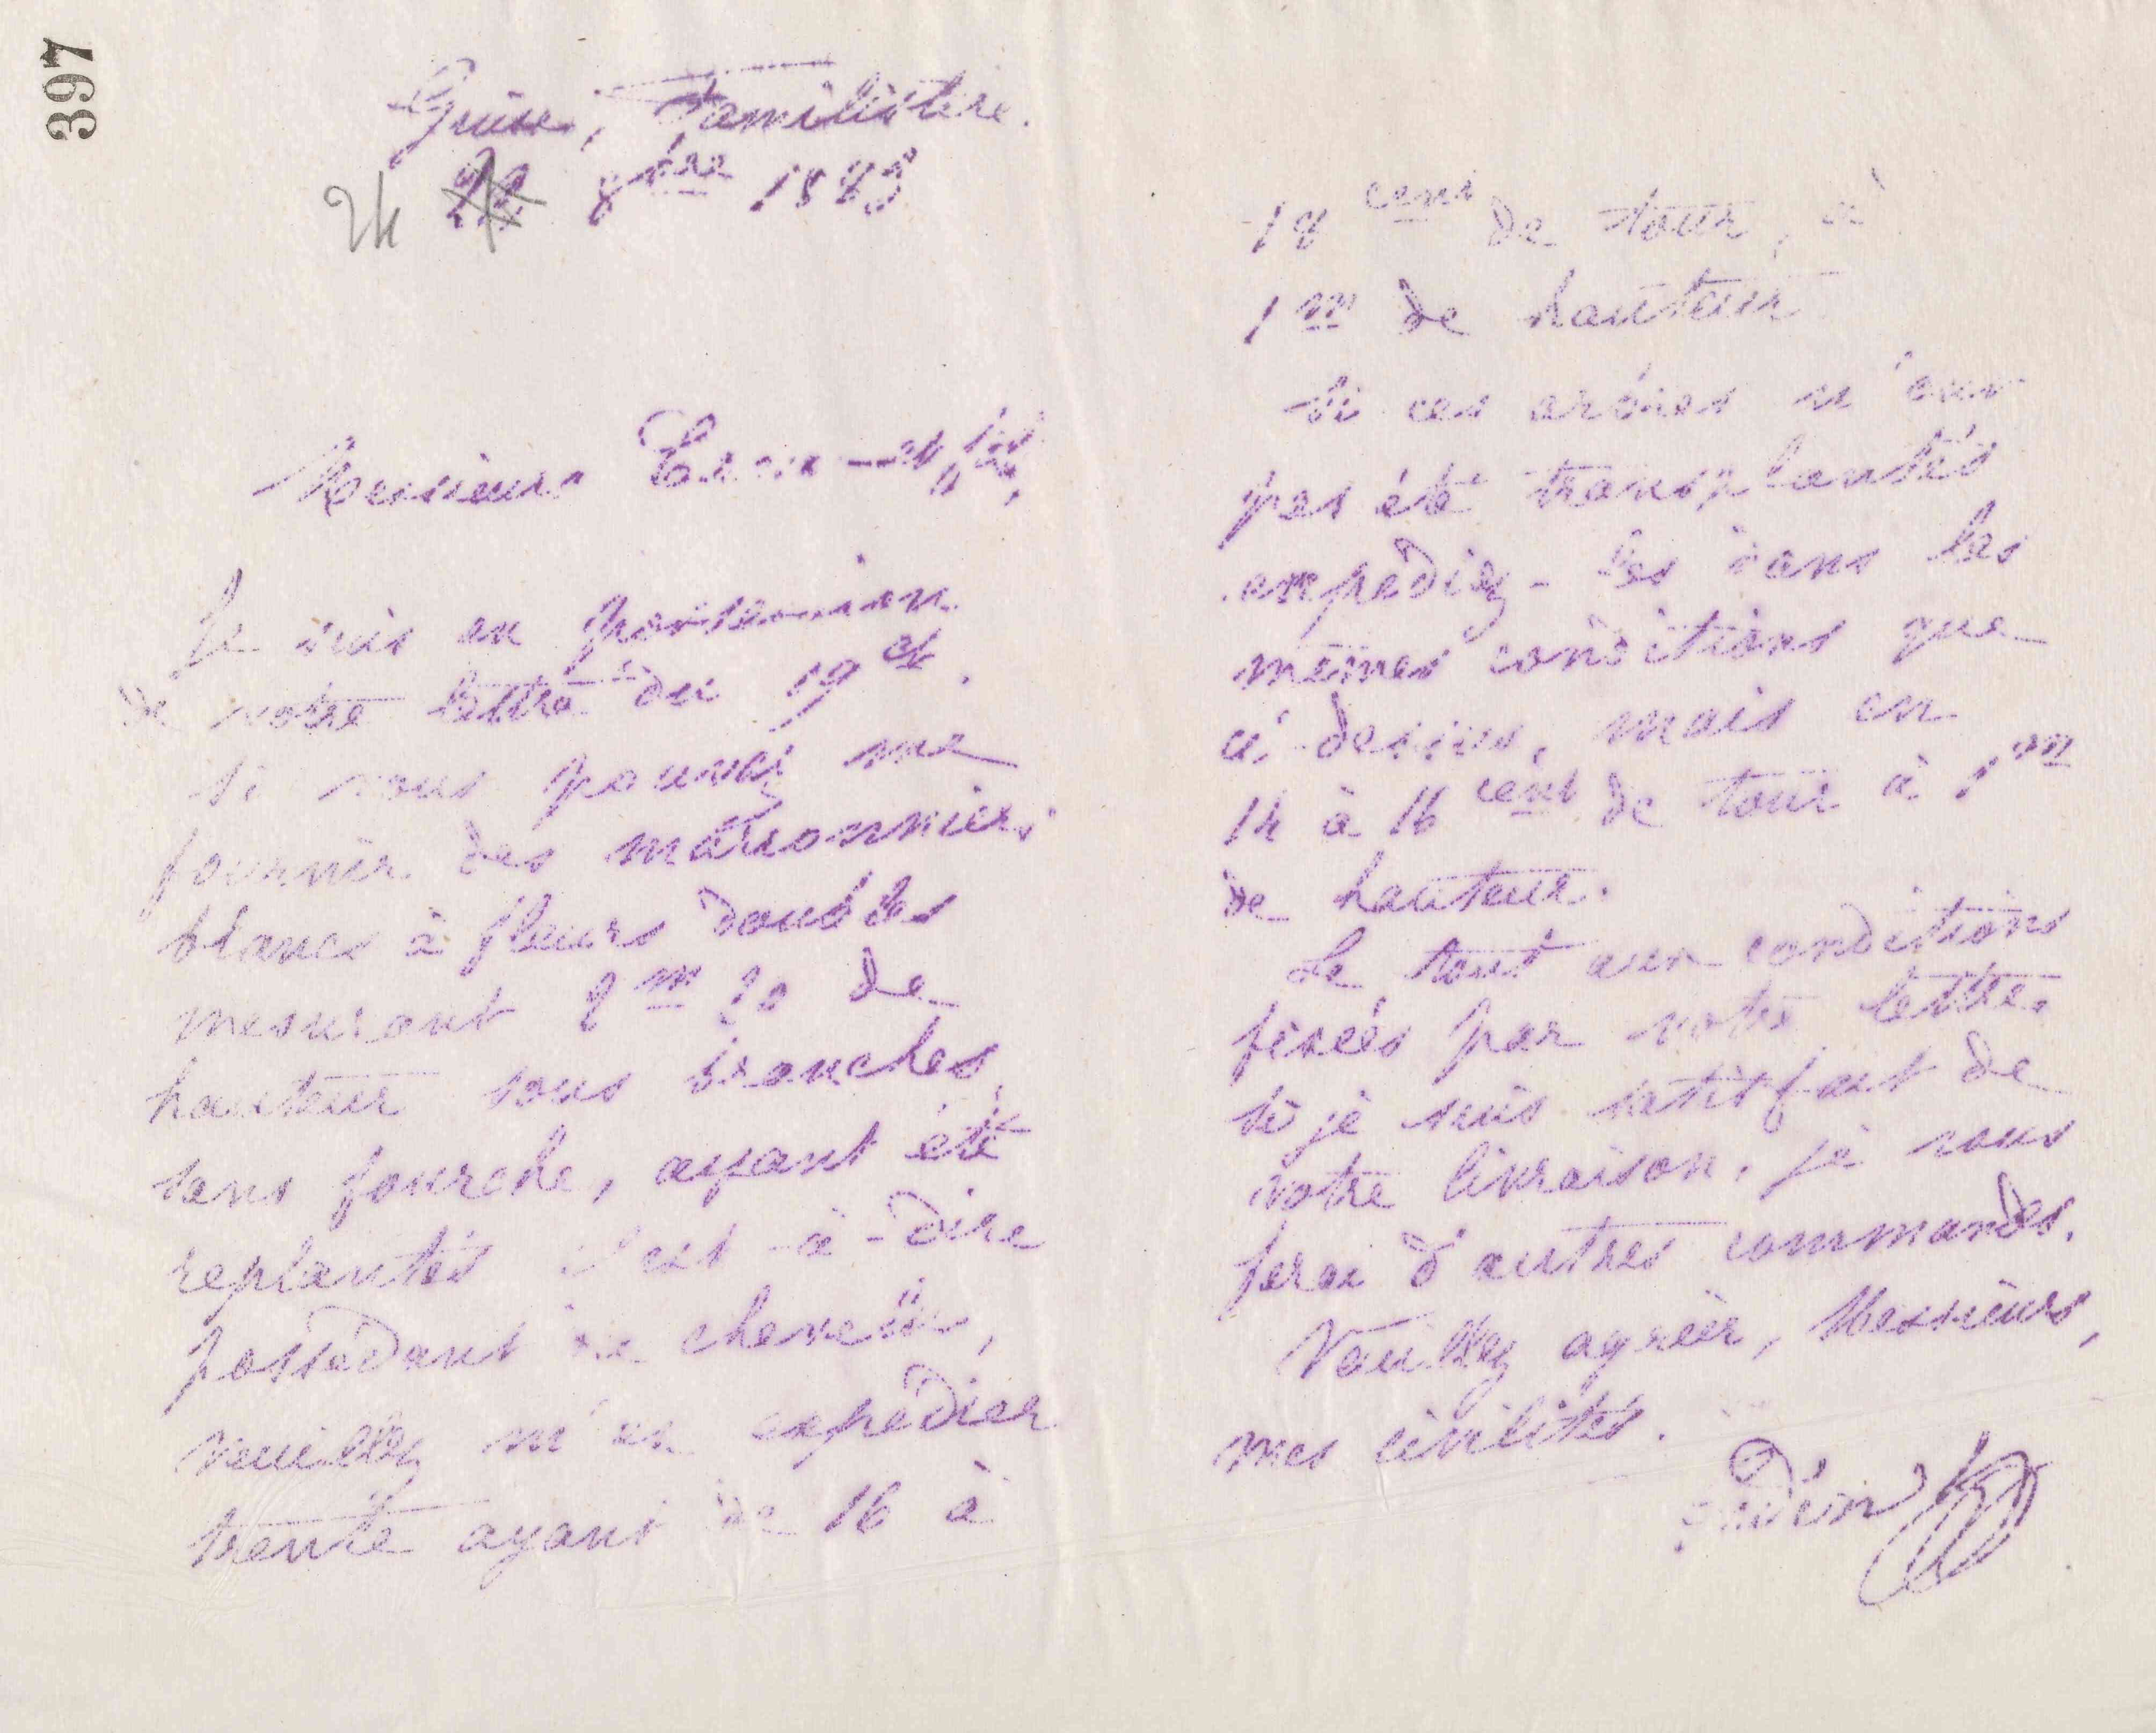 397
Guise, Familistère.
24 22 8bre 1883
Messieurs Croux et fils,
Je suis en possession
de votre lettre du 19 ct.
Si vous pouvez me
fournir des marronniers
blancs à fleurs doubles
mesurant 2m 20 de
hauteur sous branches,
sans fourche, ayant été
replantés c'est-à-dire
possédant du chevelu,
veuillez m'en expédier
trente ayant de 16 à
18 cent de tour, à
1m de hauteur
Si ces arbres n'ont
pas été transplantés
expédiez-les dans les
mêmes conditions que
ci-dessus, mais en
14 à 16 cent de tour à 1m
de hauteur.
Le tout aux conditions
fixées par votre lettre.
Si je suis satisfait de
votre livraison, je vous
ferai d'autres commandes.
Veuillez agréer, Messieurs,
mes civilités.
Godin